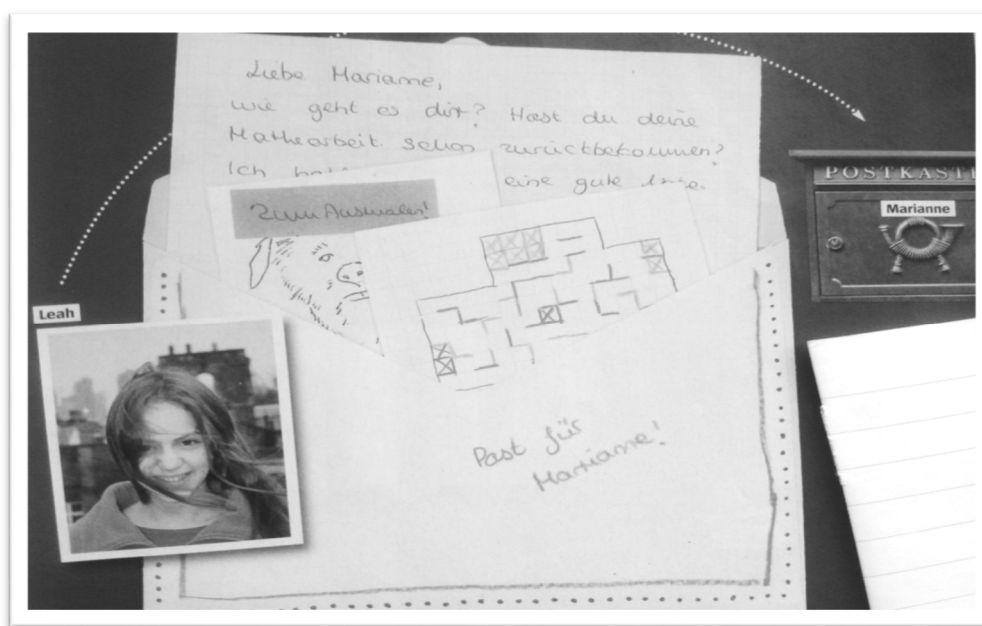 Liebe Marianne,
wie geht es dir? Hast du deine
Mathearbeit schon zurückbekommen?
Ich eine gute
Zum Ausmalen!
POSTKASTE
Marianne
Leah
Post für
Marianne!